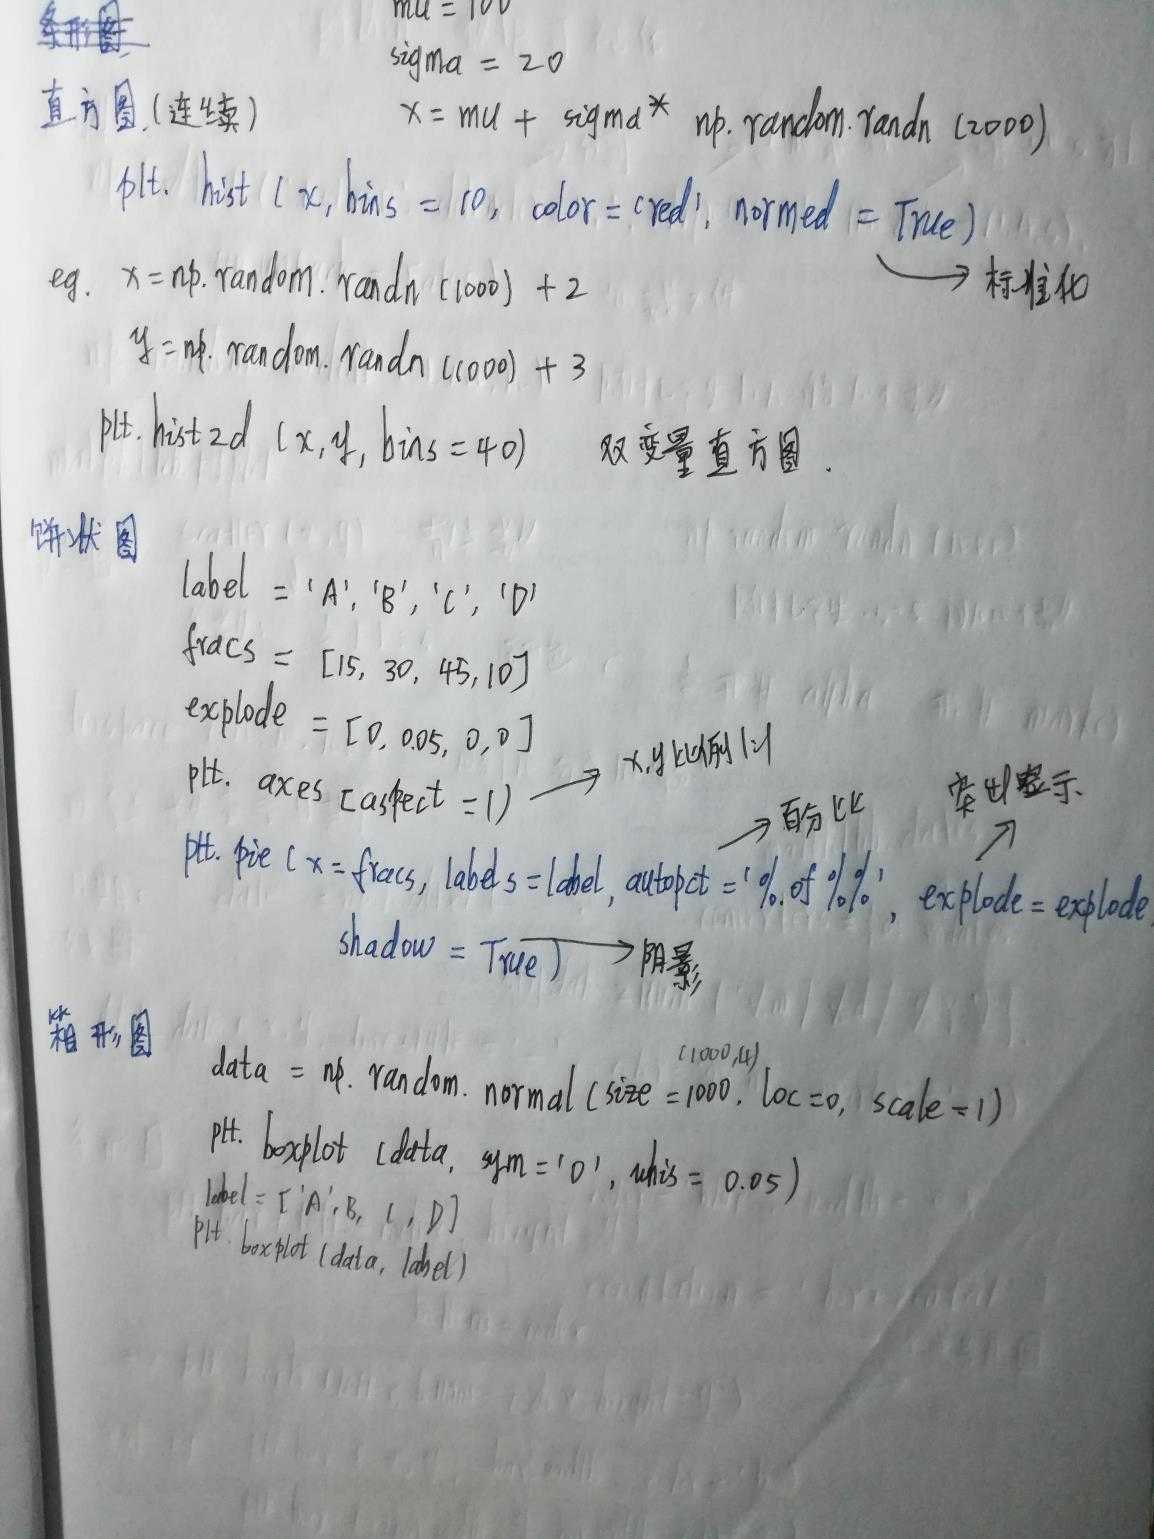 条形图
mu = 100
sigma = 20
直方图.(连续)
x = mu + sigma* np.random.randn (2000)
plt. hist ( x, bins = 10, color = 'red', normed = True)
→ 标准化
eg. x = np.random.randn (1000) + 2
y = np.random.randn (1000) + 3
plt.hist2d (x, y, bins = 40) 双变量直方图.
饼状图
label = 'A', 'B', 'C', 'D'
fracs = [15, 30, 45, 10]
explode = [0, 0.05, 0, 0]
plt. axes [aspect = 1) → x,y比例1:1
→ 百分比
突出显示
plt. pie ( x = fracs, labels = label, autopct = '%.of%%', explode = explode,
shadow = True) → 阴影
箱形图
(1000,4)
data = np.random.normal (size = 1000, loc = 0, scale = 1)
plt. boxplot (data, sym = 'o', whis = 0.05)
label = ['A', B, C, D]
plt. boxplot (data, label)